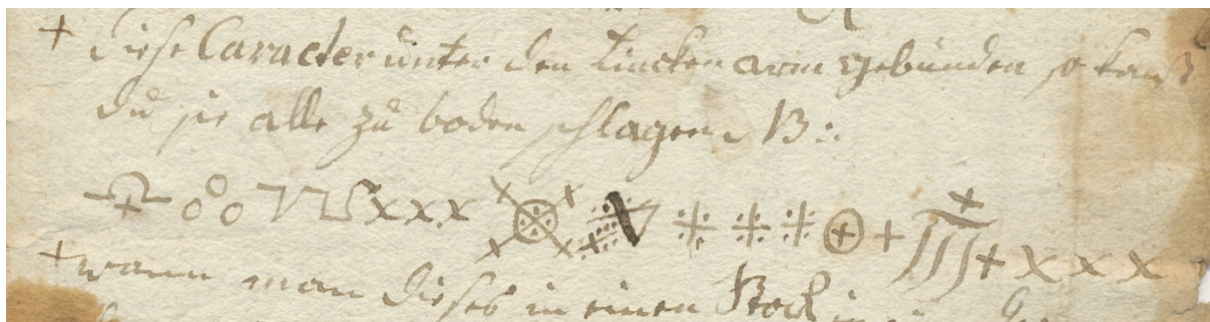 + diese Caracter unter den Lincken arm gebunden so kanst
du sie alle zu boden schlagen NB:
x x x + + x x x
+ wann man dieses in einen Stock